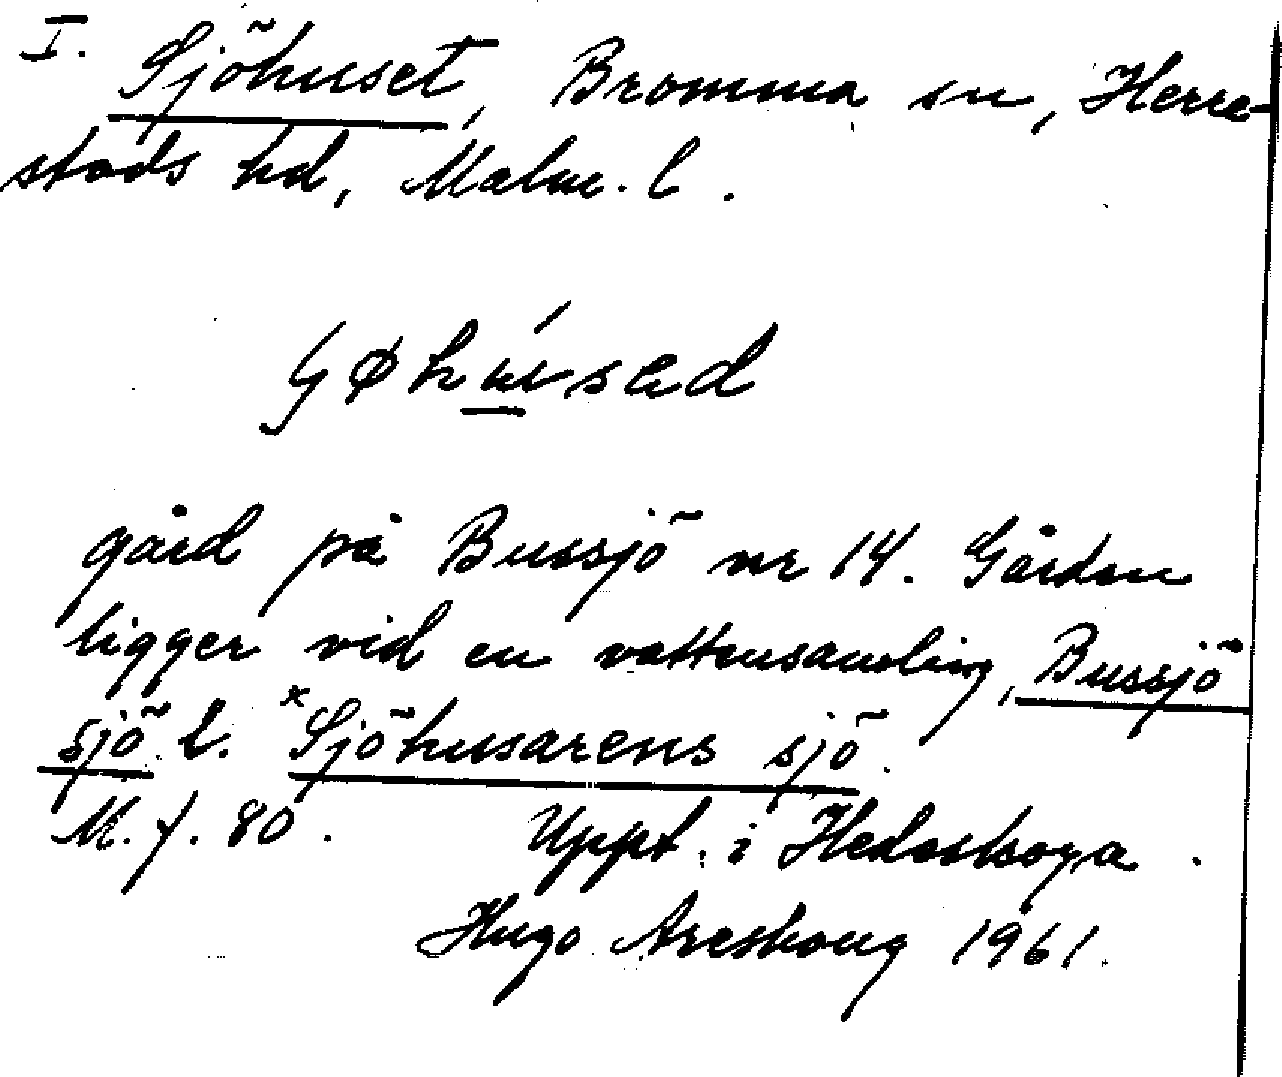 I. Sjöhuset, Bromma sn, Herre-
stads hd, Malm. l.
gård på Bussjö nr 14. Gården
ligger vid en vattensamling, Bussjö
sjö l. ˣSjöhusarens sjö.
M. f. 80. Uppt. i Hedeskoga.
Hugo Areskoug 1961.